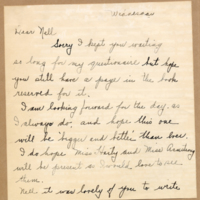 Wednesday
Dear Nell.
Sorry I kept you waiting
so long for my questionaire but hope
you still have a page in the book
reserved for it.
I am looking forward for the day, as
I always do and hope this one
will be bigger and better than ever.
I do hope Miss and Miss Armstrong
will be present as I would love to see
them.
Nell - it was lovely of you to write